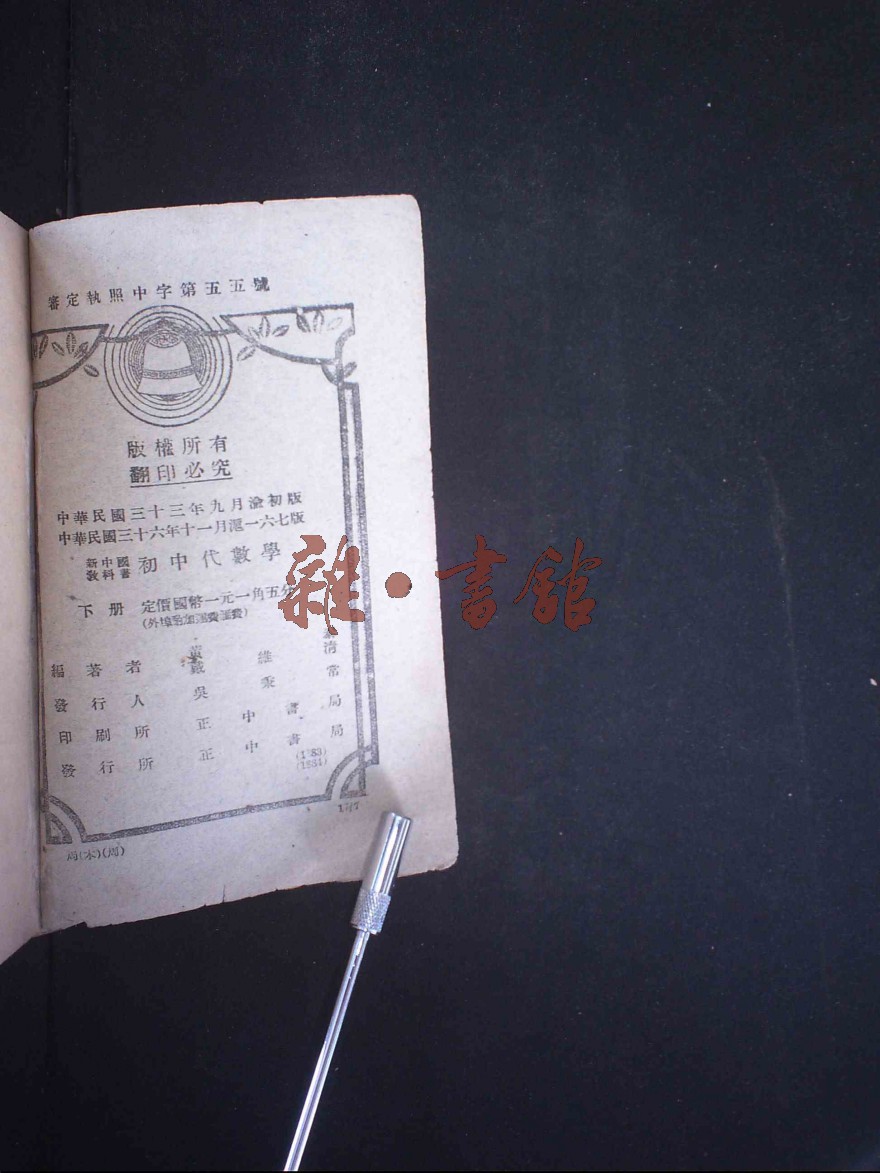 審定執照中字第五五號
版權所有
翻印必究
中華民國三十三年九月渝初版
中華民國三十六年十一月滬一六七版
新中國教科書 初中代數學
下册 定價國幣一元一角五分
(外埠酌加運費滙費)
編著者 戴維清
發行人 吳秉常
印刷所 正中書局
發行所 正中書局
(1883)
(1884)
雜·書館